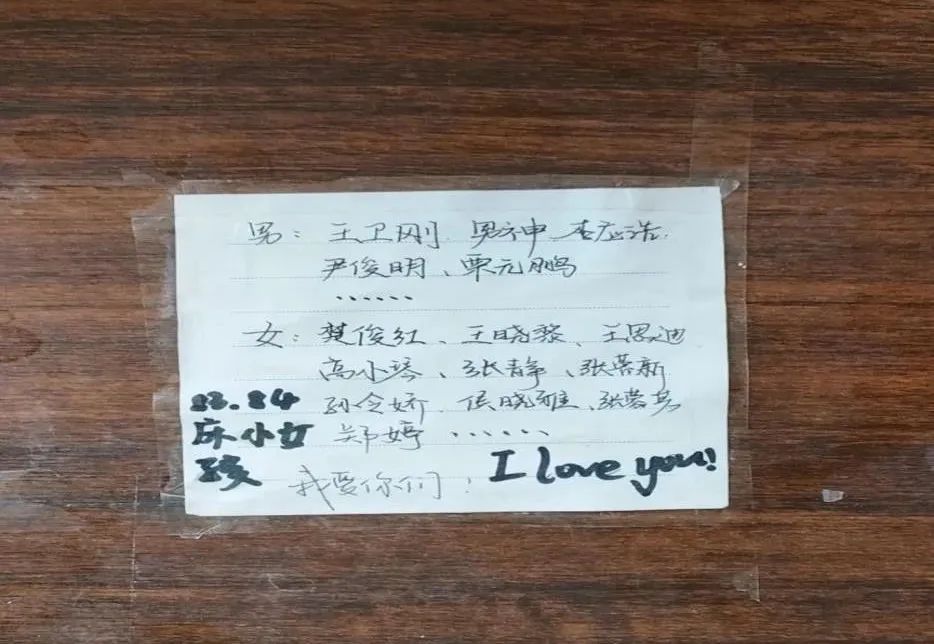 男：王卫刚、男神、李应浩、
尹俊明、栗元鹏
……
女：樊俊红、王晓黎、王思迪
高小琴、张静、张蓉新
孙令娇、侯晓雅、张蓉
郑婷……
床小女
孩
我爱你们！
I love you!